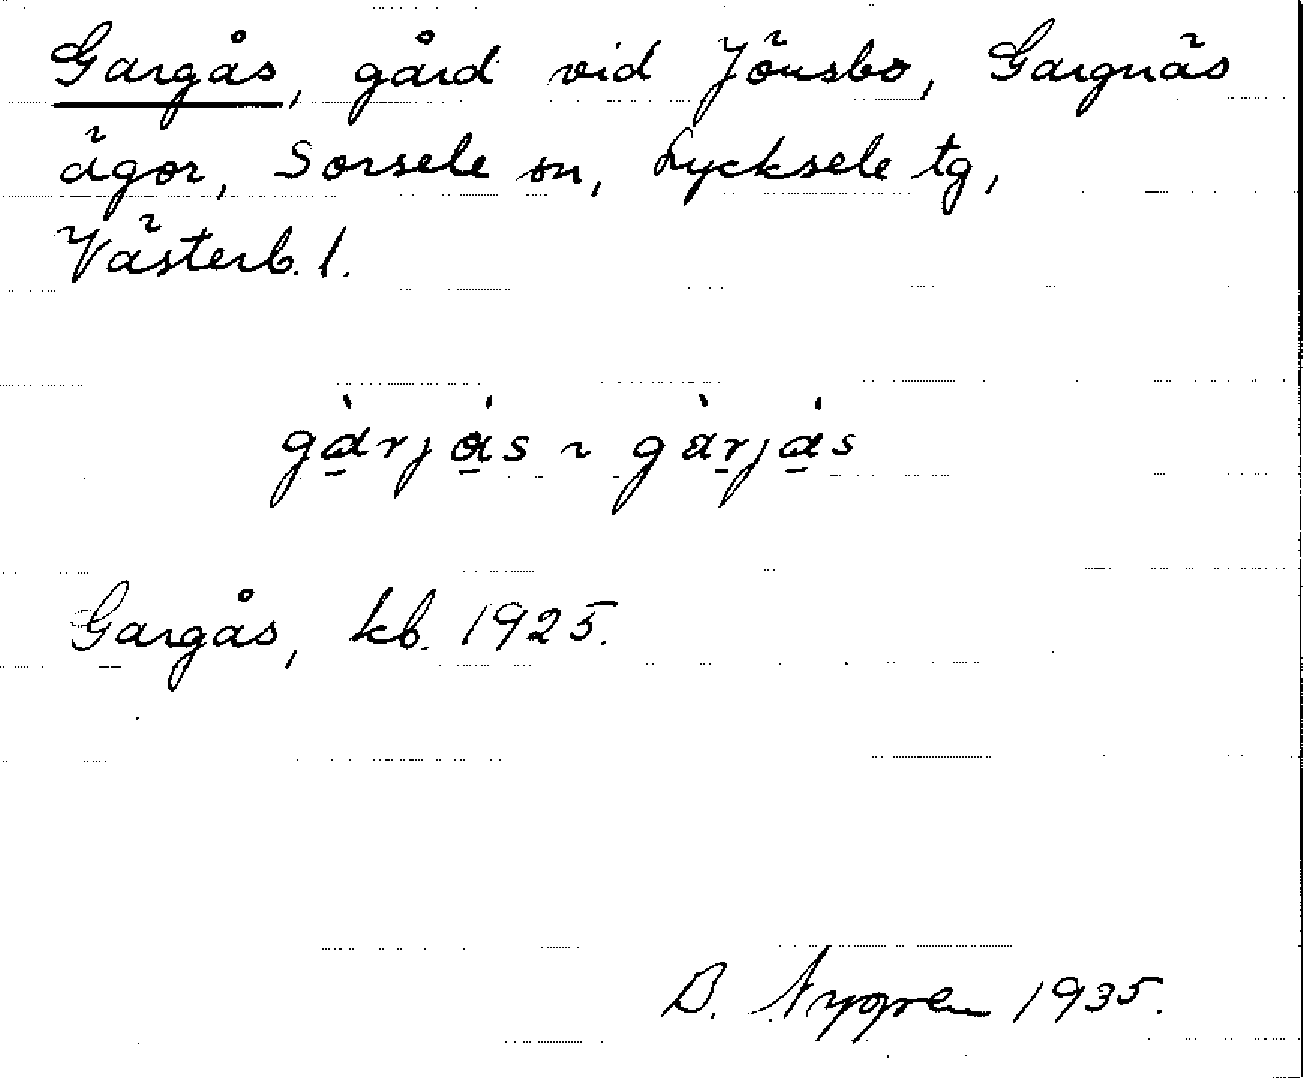 Gargås, gård vid Jönsbo, Gargnäs
ägor, Sorsele sn, Lycksele tg,
Västerb. l.
gàrjás ~ gàrjás
Gargås, kb. 1925.
D. Nygren 1935.